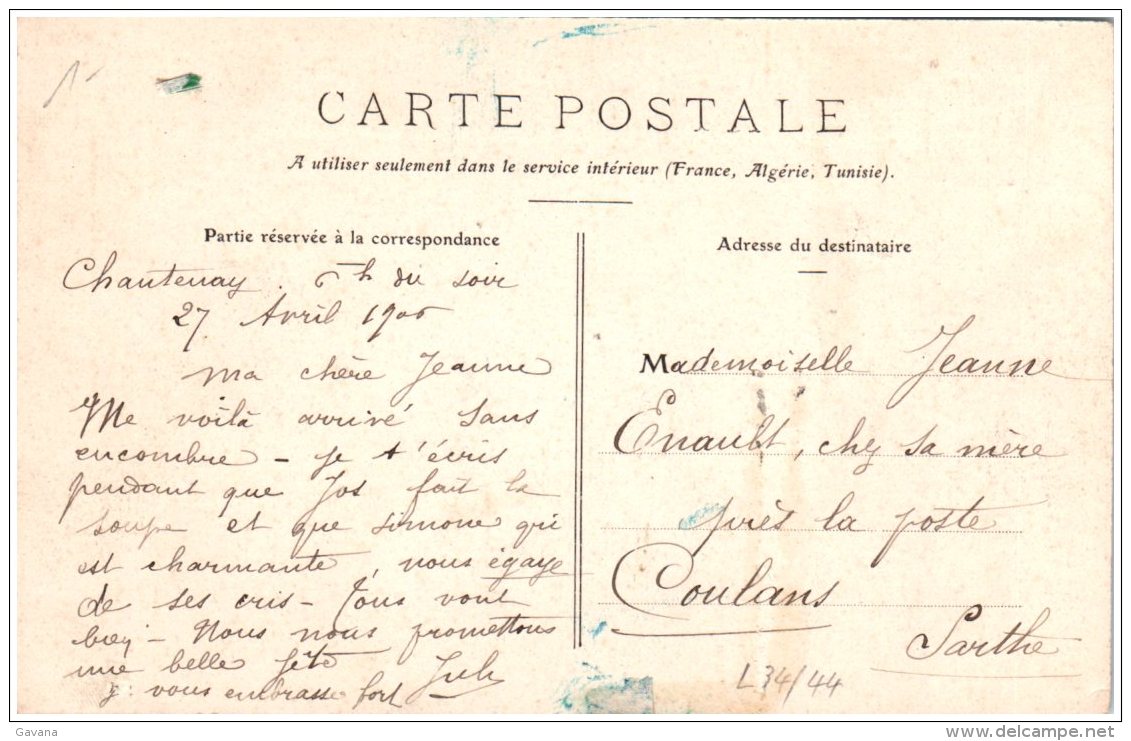 CARTE POSTALE
A utiliser seulement dans le service intérieur (France, Algérie, Tunisie).
Partie réservée à la correspondance
Chantenay. 6h du soir
27 Avril 1906
ma chère Jeanne
Me voilà arrivé sans
encombre - je t'écris
pendant que Jos fait la
soupe et que Simone qui
est charmante, nous égaye
de ses cris - Tous vont
bien - Nous nous promettons
une belle fête
Je vous embrasse fort
Adresse du destinataire
Mademoiselle Jeanne
Enault, chez sa mère
près la poste
Coulans
Sarthe
L34/44
Gavana
delcampe.net